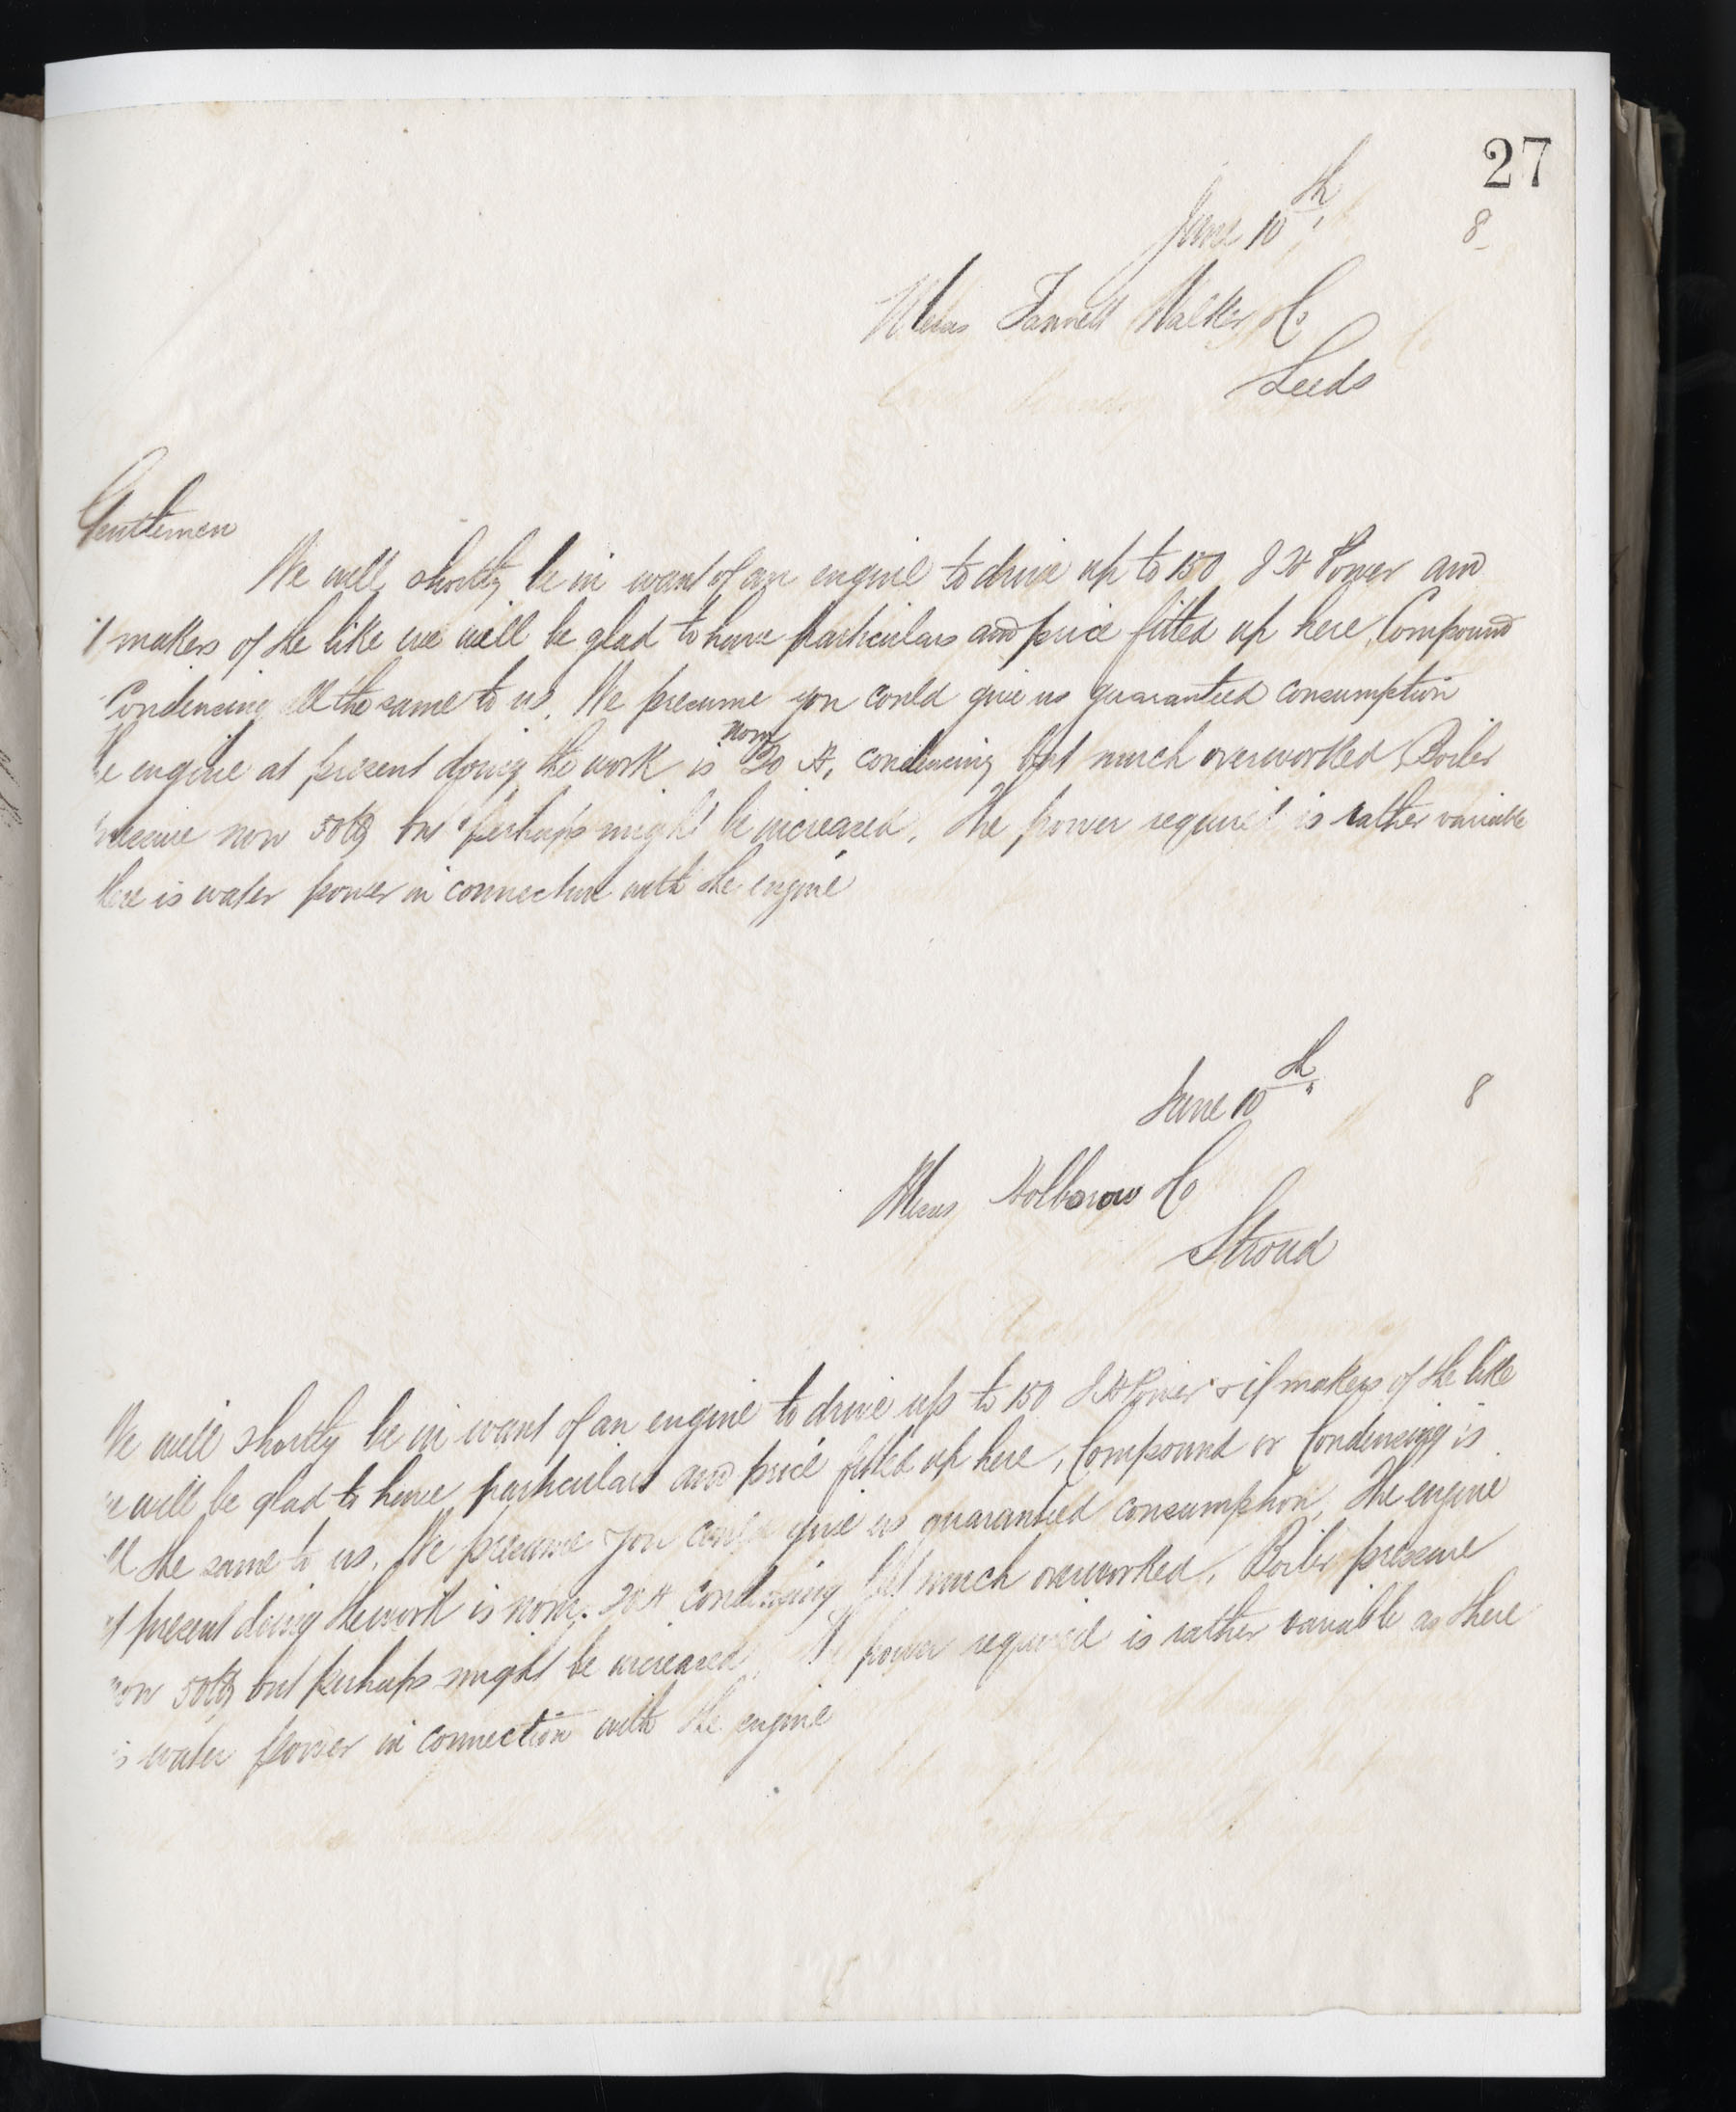 27
June 10th 8
Messrs Fawcell Walker & Co
Leeds
Gentlemen
We will shortly be in want of an engine to drive up to 150 I H Power and
if makers of the like we will be glad to have particulars and price fitted up here, Compound
Condensing all the same to us. We presume you could give us guaranteed consumption
he engine at present doing the work is nom 20 H, condensing but much overworked, Boiler
pressure now 50 lbs but perhaps might be increased. The power required is rather variable
there is water power in connection with the engine
June 10th 8
Messrs Holborow & Co
Stroud
We will shortly be in want of an engine to drive up to 150 I H Power & if makers of the like
we will be glad to have particulars and price fitted up here, Compound or Condensing is
all the same to us. We presume you could give us guaranteed consumption, The engine
at present doing the work is nom. 20 H condensing but much overworked, Boiler pressure
now 50 lbs but perhaps might be increased, power required is rather variable as there
is water power in connection with the engine